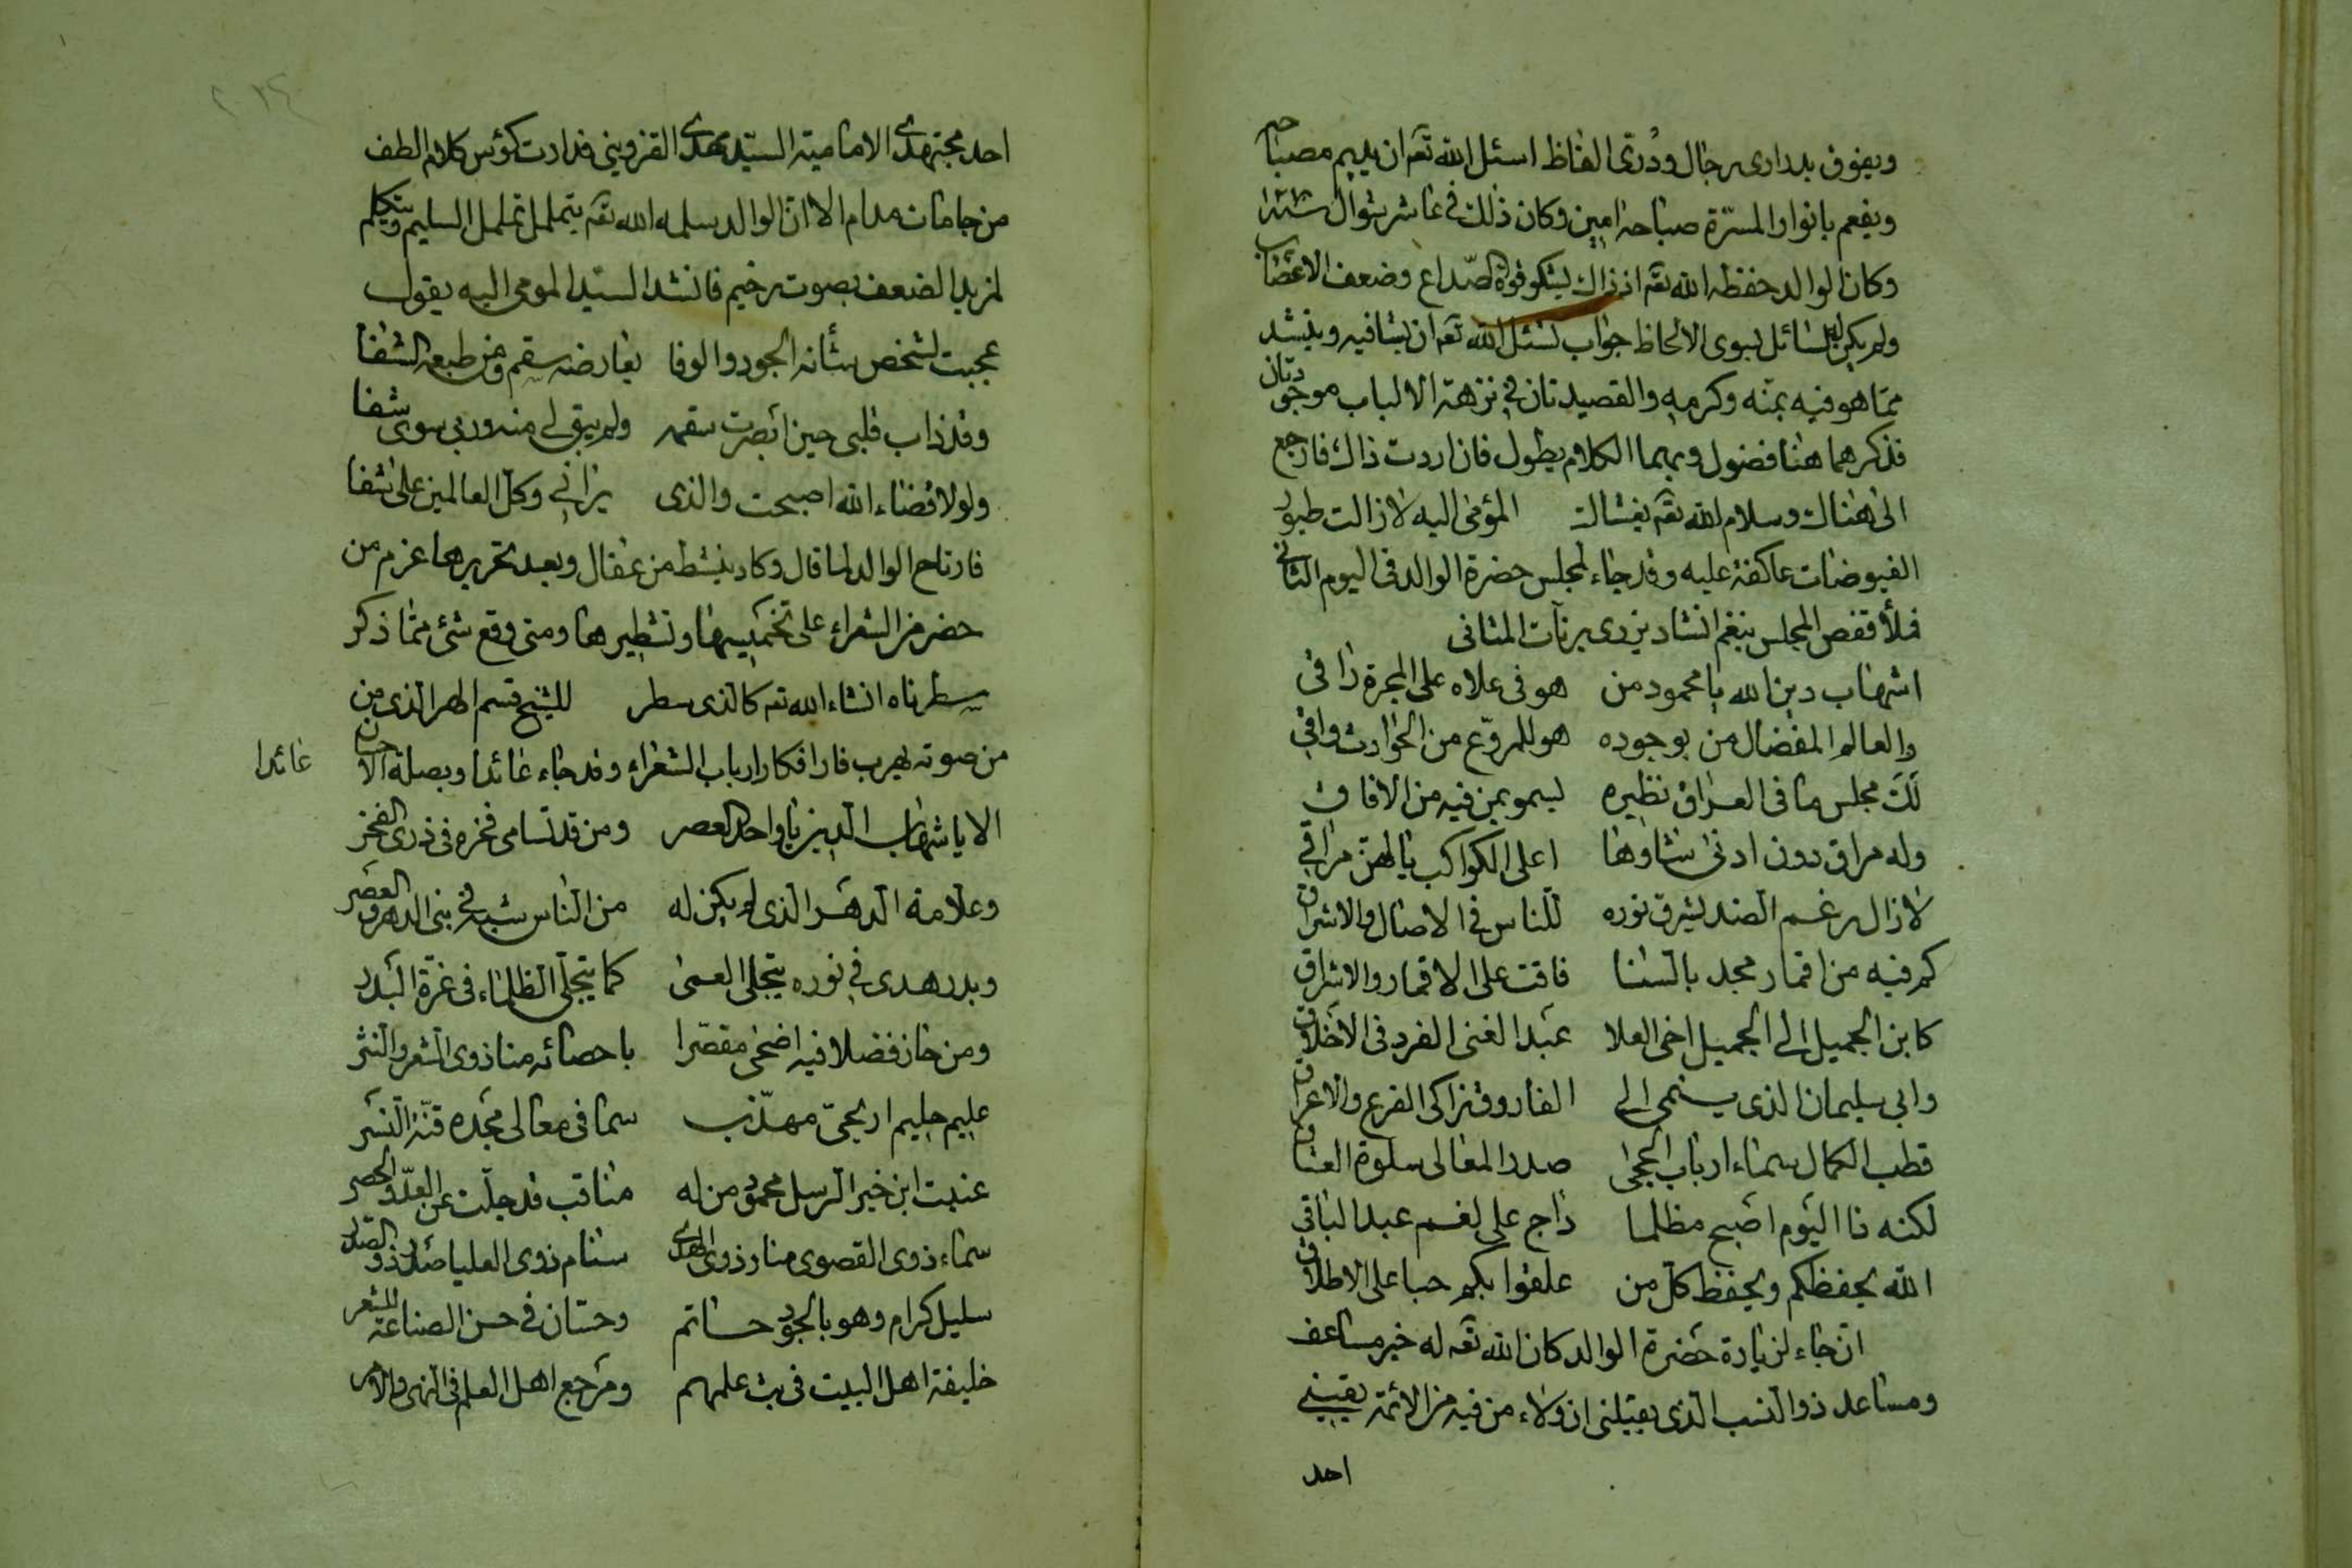 ويفوق بدرارى رجال ودرى الفاظ اسئل الله تعه ان يديم مصباحه
ويفعم بانوار المسرة صباحه امين وكان ذلك فى عاشر شوال سنة
وكان الوالد حفظه الله تعه اذ ذاك يشكو قوة الصداع وضعف الاعصاب
ولم يكن لسائل سوى الالحاظ جواب نسئل الله تعه ان يشافيه وينشد
مما هو فيه بمنه وكرمه والقصيدتان فى نزهة الالباب موجودتان
فذكرهما هنا فضول وبهما الكلام يطول فان اردت ذاك فارجع
الى هناك وسلام الله تعه يغشاك المؤمى اليه لا زالت طيور
الفيوضات عاكفة عليه وقد جاء لمجلس حضرة الوالد فى اليوم الثانى
فملأ قفص المجلس بنغم انشاد يزرى برنات المثانى
اشهاب دين الله يا محمود من هو فى علاه على المجرة راقى
والعالم المفضال من بوجوده هو للمروع من الحوادث واقى
لك مجلس ما فى العراق نظيره يسمو بمن فيه من الافاق
وله مراق دون ادنى شاوها اعلى الكواكب يا لهن مراقى
لا زال رغم الضد يشرق نوره للناس فى الاصال والاشراق
كم فيه من اقمار مجد بالسنا فاقت على الاقمار والاشراق
كابن الجميل الى الجميل اخى العلا عبد الغنى الفرد فى الاخلاق
وابى سليمان الذى ينتمى الى الفاروق زاكى الفرع والاعراق
قطب الكمال سماء ارباب الحجى صدر المعالى سلوة العشاق
لكنه ذا اليوم اصبح مظلما داج على لغم عبد الباقى
الله يحفظكم ويحفظ كل من علقوا بكم حبا على الاطلاق
ان جاء لزيارة حضرة الوالد كان الله تعه له خير مساعف
ومساعد ذو النسب الذى يقيلنى ان ولاء من فيه من الائمة يقينى
احد
احد مجتهدى الامامية السيد مهدى القزوينى فدارت كؤس كلام الطف
من جامات مدام الا ان الوالد سلمه الله تعه يتململ تململ السليم ويتكلم
لمزيد الضعف بصوت رخيم فانشد السيد المومى اليه يقول
عجبت لشخص شأنه الجود والوفا يعارضه سقم ومن طبعه الشفا
وقد ذاب قلبى حين ابصرت سقمه ولم يبق لى منه وربى سوى شفا
ولولا قضاء الله اصبحت والذى يرانى وكل العالمين على شفا
فارتاح الوالد لما قال وكاد ينشط من عقال وبعد تحريرها عزم من
حضر من الشعراء على تخميسها وتشطيرها ومتى وقع شئ مما ذكر
سطرناه انشاء الله تعه كالذى سطر للشيخ قسم الهر الذى من
من صوته يهرب فار افكار ارباب الشعراء وقد جاء عائدا وبصلة الاحسان
عائدا
الا يا شهاب الدين يا واحد العصر ومن قد تسامى فخره فى ذرى الفخر
وعلامة الدهر الذى لم يكن له من الناس شبه فى بنى الدهر والعصر
وبدر هدى فى نوره يتجلى العمى كما يتجلى الظلماء فى غرة البدر
ومن حاز فضلا فيه اضحى مقصرا باحصائه منا ذوى الشعر والنثر
عليم حليم اريحى مهذب سما فى معالى مجده قنة النسر
عنيت ابن خير الرسل محمود من له مناقب قد جلت عن العد والحصر
سماء ذوى القصوى منار ذوى الهدى سنام ذوى العليا صدر ذوى الصدر
سليل كرام وهو بالجود حاتم وحسان فى حسن الصناعة للشعر
خليفة اهل البيت فى بث علمهم ومرجع اهل العلم فى النهى والامر